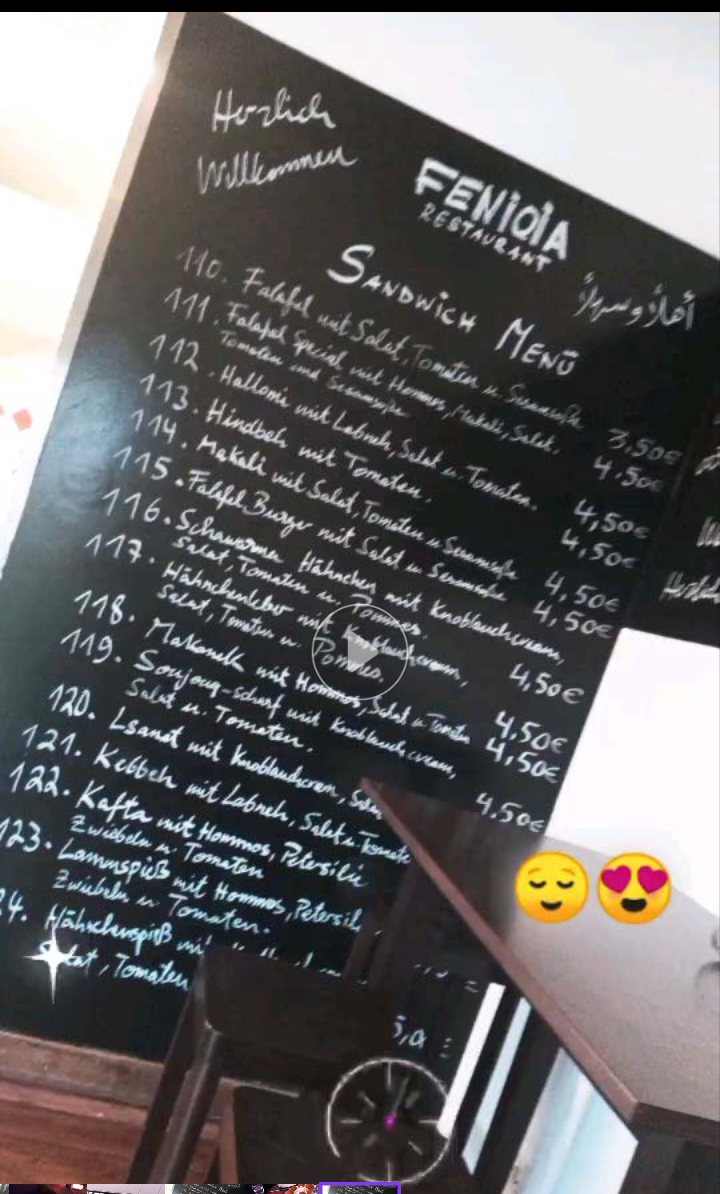 Herzlich
Willkommen
FENIQIA
RESTAURANT
أهلاً وسهلاً
SANDWICH MENÜ
110. Falafel mit Salat, Tomaten u. Sesamsoße 3,50€
111. Falafel Special mit Hommos, Makali, Salat,
Tomaten und Sesamsoße 4,50€
112. Halloumi mit Labneh, Salat u. Tomaten. 4,50€
113. Hindbeh mit Tomaten. 4,50€
114. Makali mit Salat, Tomaten u. Sesamsoße 4,50€
115. Falafel Burger mit Salat u. Sesamsoße 4,50€
116. Schawarma Hähnchen mit Knoblauchcream,
Salat, Tomaten u. Pommes. 4,50€
117. Hähnchenleber mit Knoblauchcream,
Salat, Tomaten u. Pommes. 4,50€
118. Makanek mit Hommos, Salat u. Tomaten 4,50€
119. Soujouq-scharf mit Knoblauchcream,
Salat u. Tomaten. 4,50€
120. Lsanat mit Knoblauchcrem,
121. Kebbeh mit Labneh, Salat u. Tomate
122. Kafta mit Hommos, Petersilie
Zwiebeln u. Tomaten
123. Lammspieß mit Hommos, Petersil
Zwiebeln u. Tomaten.
24. Hähnchenspieß mit
Salat, Tomaten